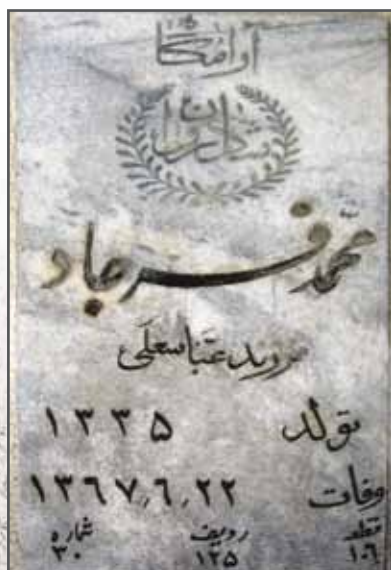 آرامگاه
شادروان
محمد فرجاد
فرزند عباسعلی
تولد ۱۳۳۵
وفات ۱۳۶۷٫۶٫۲۲
قطعه ردیف شماره
۱۰۶ ۱۲۵ ۳۰